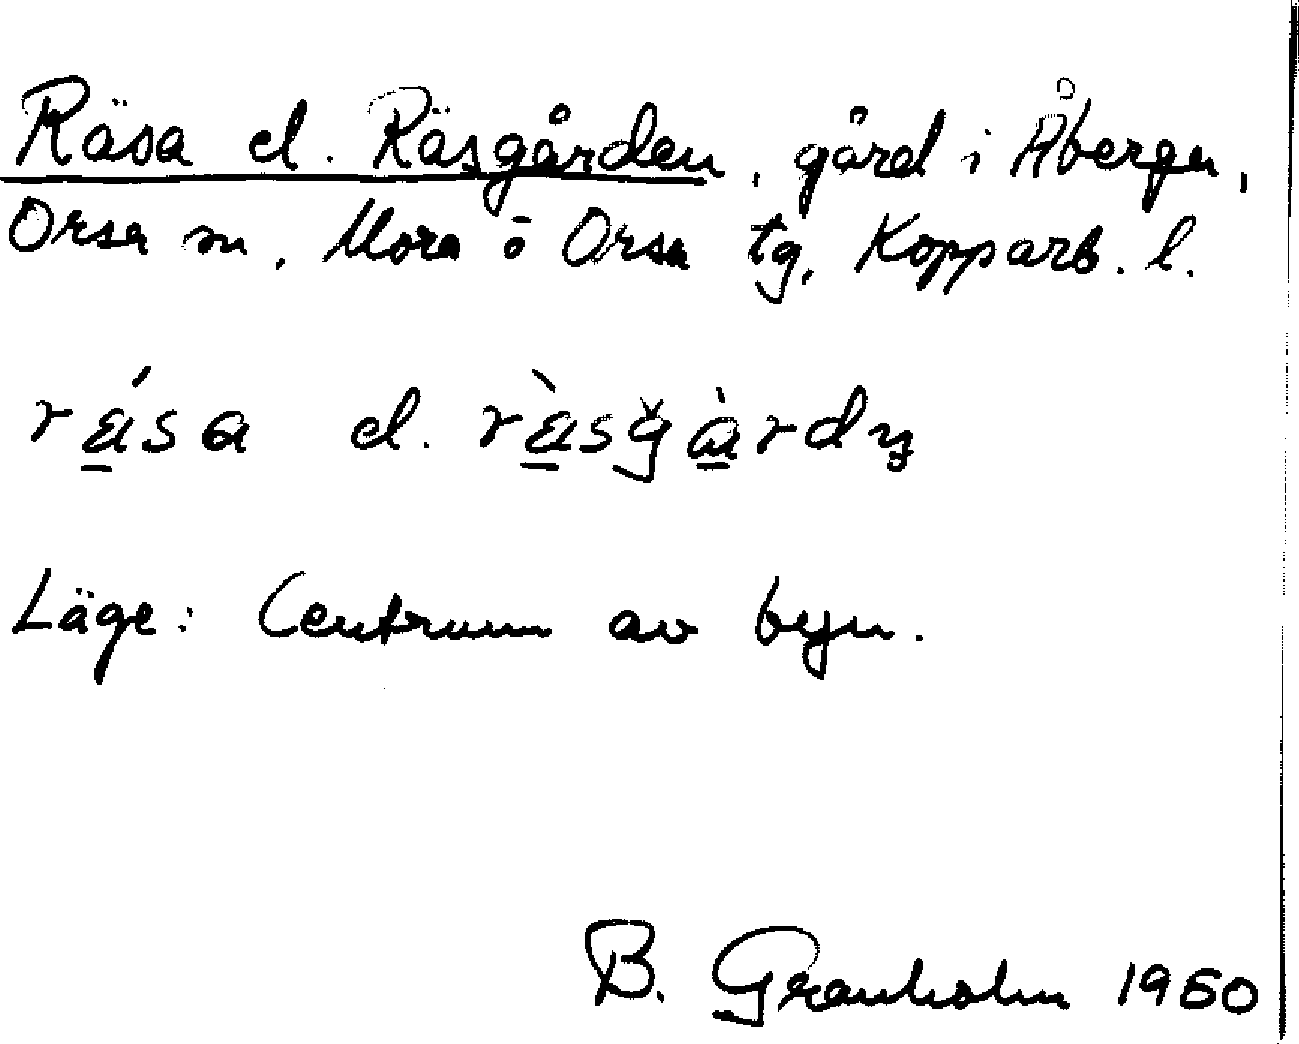 Räsa el. Räsgården, gård i Åbergu,
Orsa sn, Mora o Orsa tg, Kopparb. l.
rä́sa el. rä̀sǧä̀rdn̥
Läge: Centrum av byn.
B. Granholm 1960